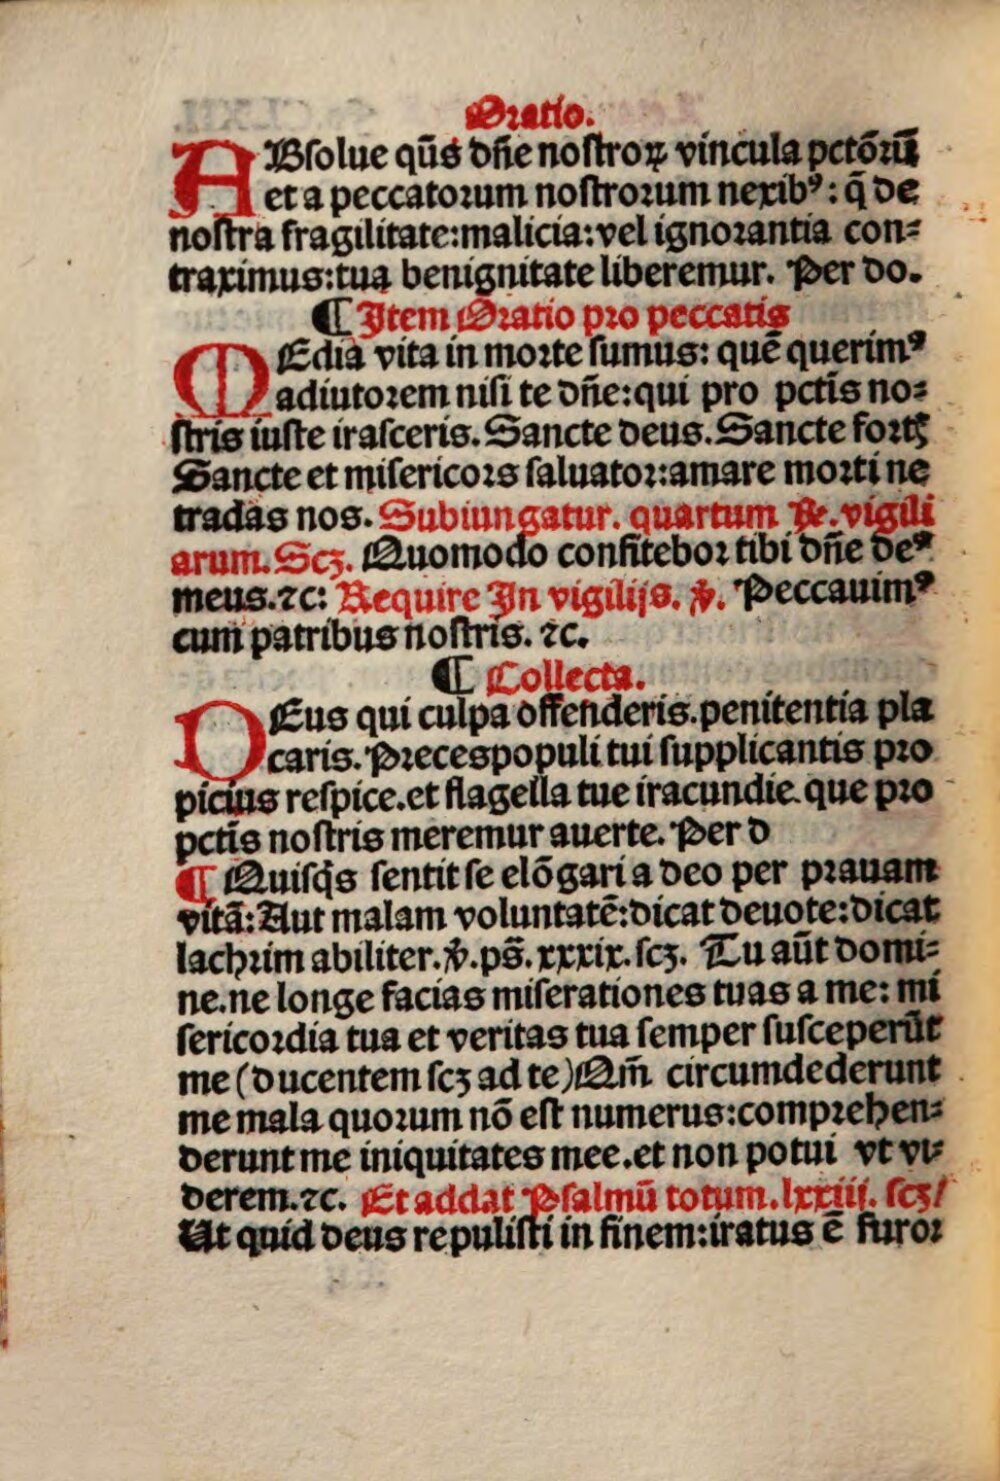 Oratio.
ABſolue q̄ſ dn̄e noſtroꝝ vincula pctōꝛū
et a peccatoꝛum noſtroꝛum nexibꝰ: q̄ de
noſtra fragilitate:malicia:vel ignoꝛantia con⸗
traximus:tua benignitate liberemur. Per do.
¶ Item Oratio pꝛo peccatis
MEdia vita in moꝛte ſumus: quē querimꝰ
adiutoꝛem niſi te dn̄e:qui pro pctīs no⸗
ſtris iuſte iraſceris. Sancte deus. Sancte foꝛtꝭ
Sancte et miſericoꝛs ſaluatoꝛ:amare moꝛti ne
tradas nos. Subiungatur. quartum ℟. vigili
arum. Scꝫ. Quomodo confiteboꝛ tibi dn̄e deꝰ
meus.⁊c: Require In vigilijs. ℣. Peccauimꝰ
cum patribus noſtris. ⁊c.
¶ Collecta.
DEus qui culpa offenderis.penitentia pla
caris. Pꝛeces populi tui ſupplicantis pꝛo
picius reſpice.et flagella tue iracundie.que pꝛo
pctīs noſtris meremur auerte. Per d
¶ Quiſq̄s ſentit ſe elōgari a deo per pꝛauam
vitā: Aut malam voluntatē:dicat deuote:dicat
lachꝛim abiliter. ℣. pſ̄. xxxix. ſcꝫ. Tu aūt domi⸗
ne.ne longe facias miſerationes tuas a me: mi
ſericoꝛdia tua et veritas tua ſemper ſuſceperūt
me (ducentem ſcꝫ ad te) Qm̄ circumdederunt
me mala quoꝛum nō eſt numerus:compꝛehen⸗
derunt me iniquitates mee.et non potui vt vi⸗
derem.⁊c. Et addat Pſalmū totum.lxxiij. ſcꝫ/
Ut quid deus repuliſti in finem:iratus ē furoꝛ